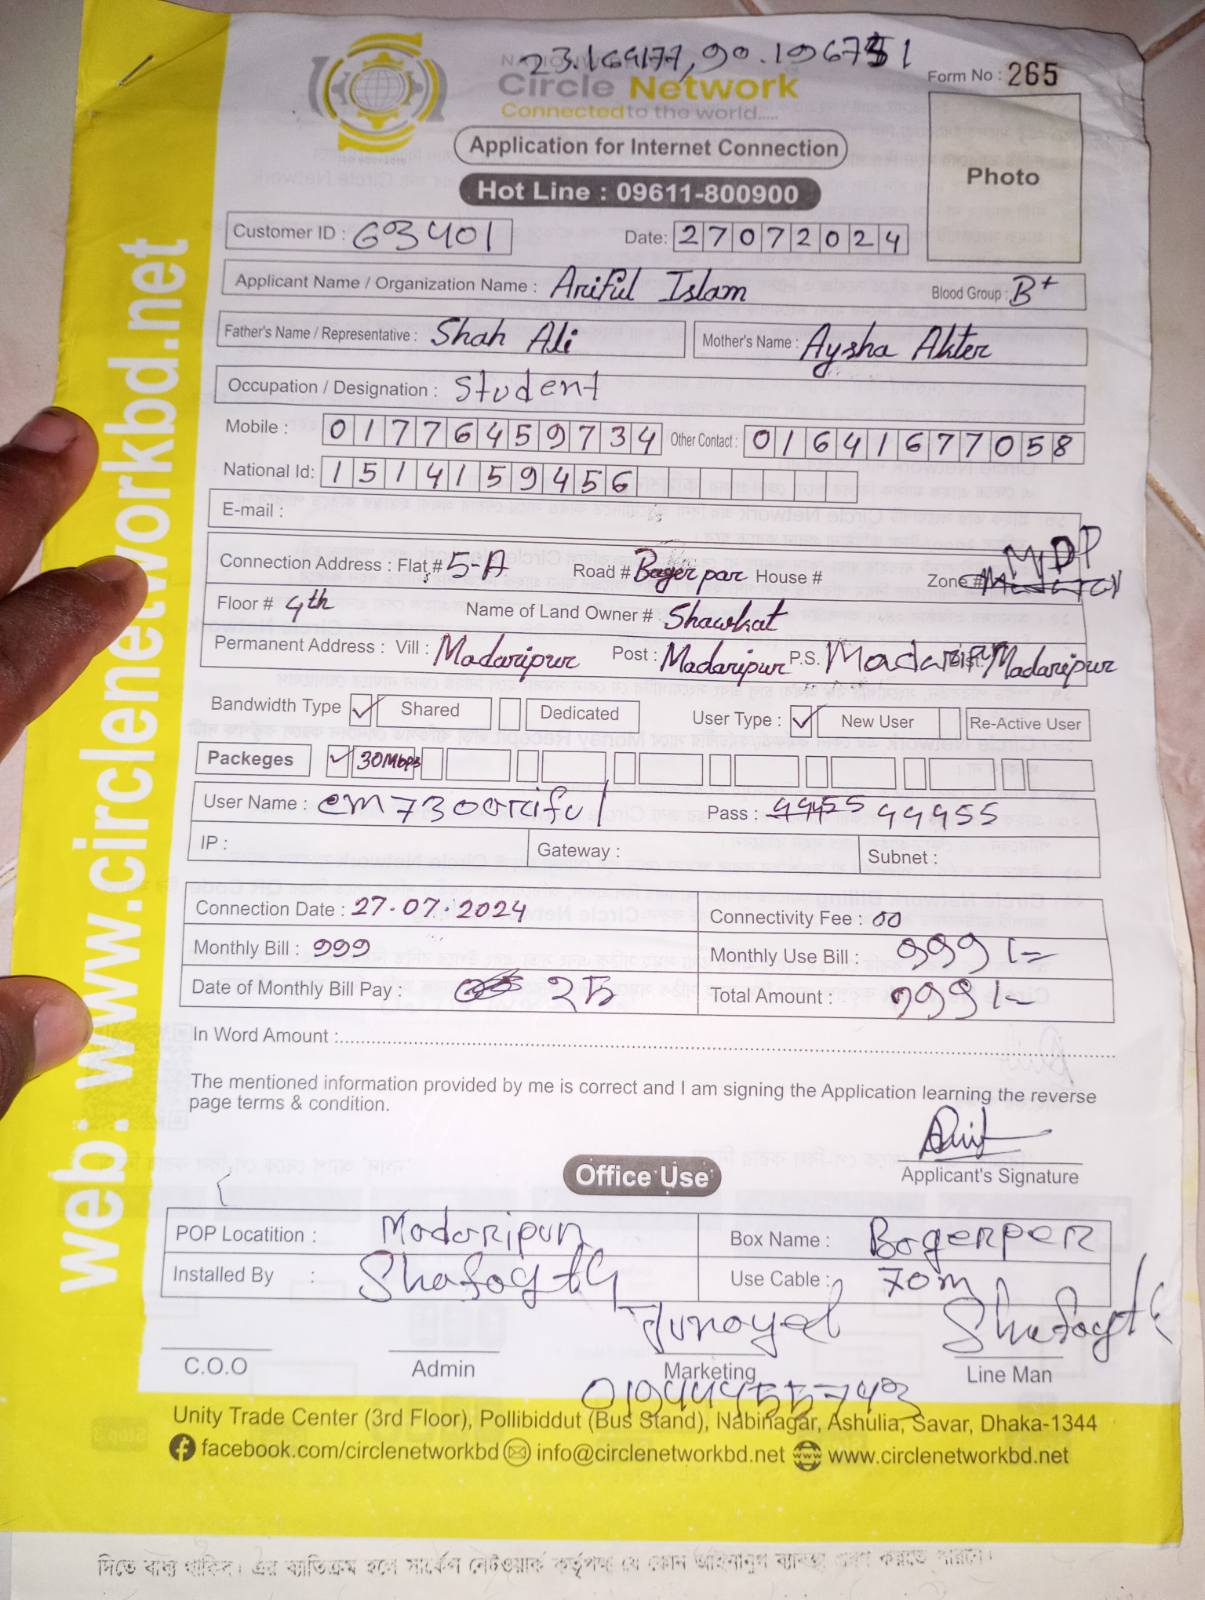 23.169177, 90.196751
NATIONW
Circle Network
Connected to the world.....
Form No : 265
Photo
Application for Internet Connection
Hot Line : 09611-800900
Customer ID : G03401 Date: 27072024
Applicant Name / Organization Name : Ariful Islam Blood Group : B+
Father's Name / Representative : Shah Ali Mother's Name : Aysha Akter
Occupation / Designation : Student
Mobile : 01776459734 Other Contact : 01641677058
National Id: 1514159456
E-mail :
Connection Address : Flat # 5-A Road # Bager par House # Zone # MDP
Floor # 4th Name of Land Owner # Shawkat
Permanent Address : Vill : Madaripur Post : Madaripur P.S. Madaripur Dist. Madaripur
Bandwidth Type ✓ Shared Dedicated User Type : ✓ New User Re-Active User
Packeges ✓ 30Mbps
User Name : cm7300ariful Pass : 4455 44955
IP : Gateway : Subnet :
Connection Date : 27.07.2024 Connectivity Fee : 00
Monthly Bill : 999 Monthly Use Bill : 999/=
Date of Monthly Bill Pay : 25 Total Amount : 999/=
In Word Amount :
The mentioned information provided by me is correct and I am signing the Application learning the reverse
page terms & condition.
Arif
Applicant's Signature
Office Use
POP Locatition : Madaripur Box Name : Bogerper
Installed By : Use Cable : 70m
Junayel
C.O.O Admin Marketing Line Man
Unity Trade Center (3rd Floor), Pollibiddut (Bus Stand), Nabinagar, Ashulia, Savar, Dhaka-1344
facebook.com/circlenetworkbd info@circlenetworkbd.net www.circlenetworkbd.net
web: www.circlenetworkbd.net
দিতে বাধ্য থাকিব। এর ব্যতিক্রম হলে সার্কেল নেটওয়ার্ক কর্তৃপক্ষ যে কোন আইনানুগ ব্যবস্থা গ্রহণ করতে পারবে।